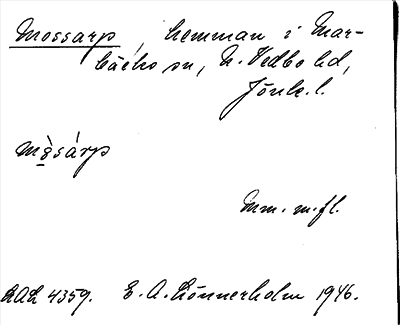 Mossarp, hemman i Mar-
bäcks sn, N. Vedbo hd,
Jönk. l.
mòsárp
Mm. m.fl.
ULA 4359. E. A. Lönnerholm 1946.